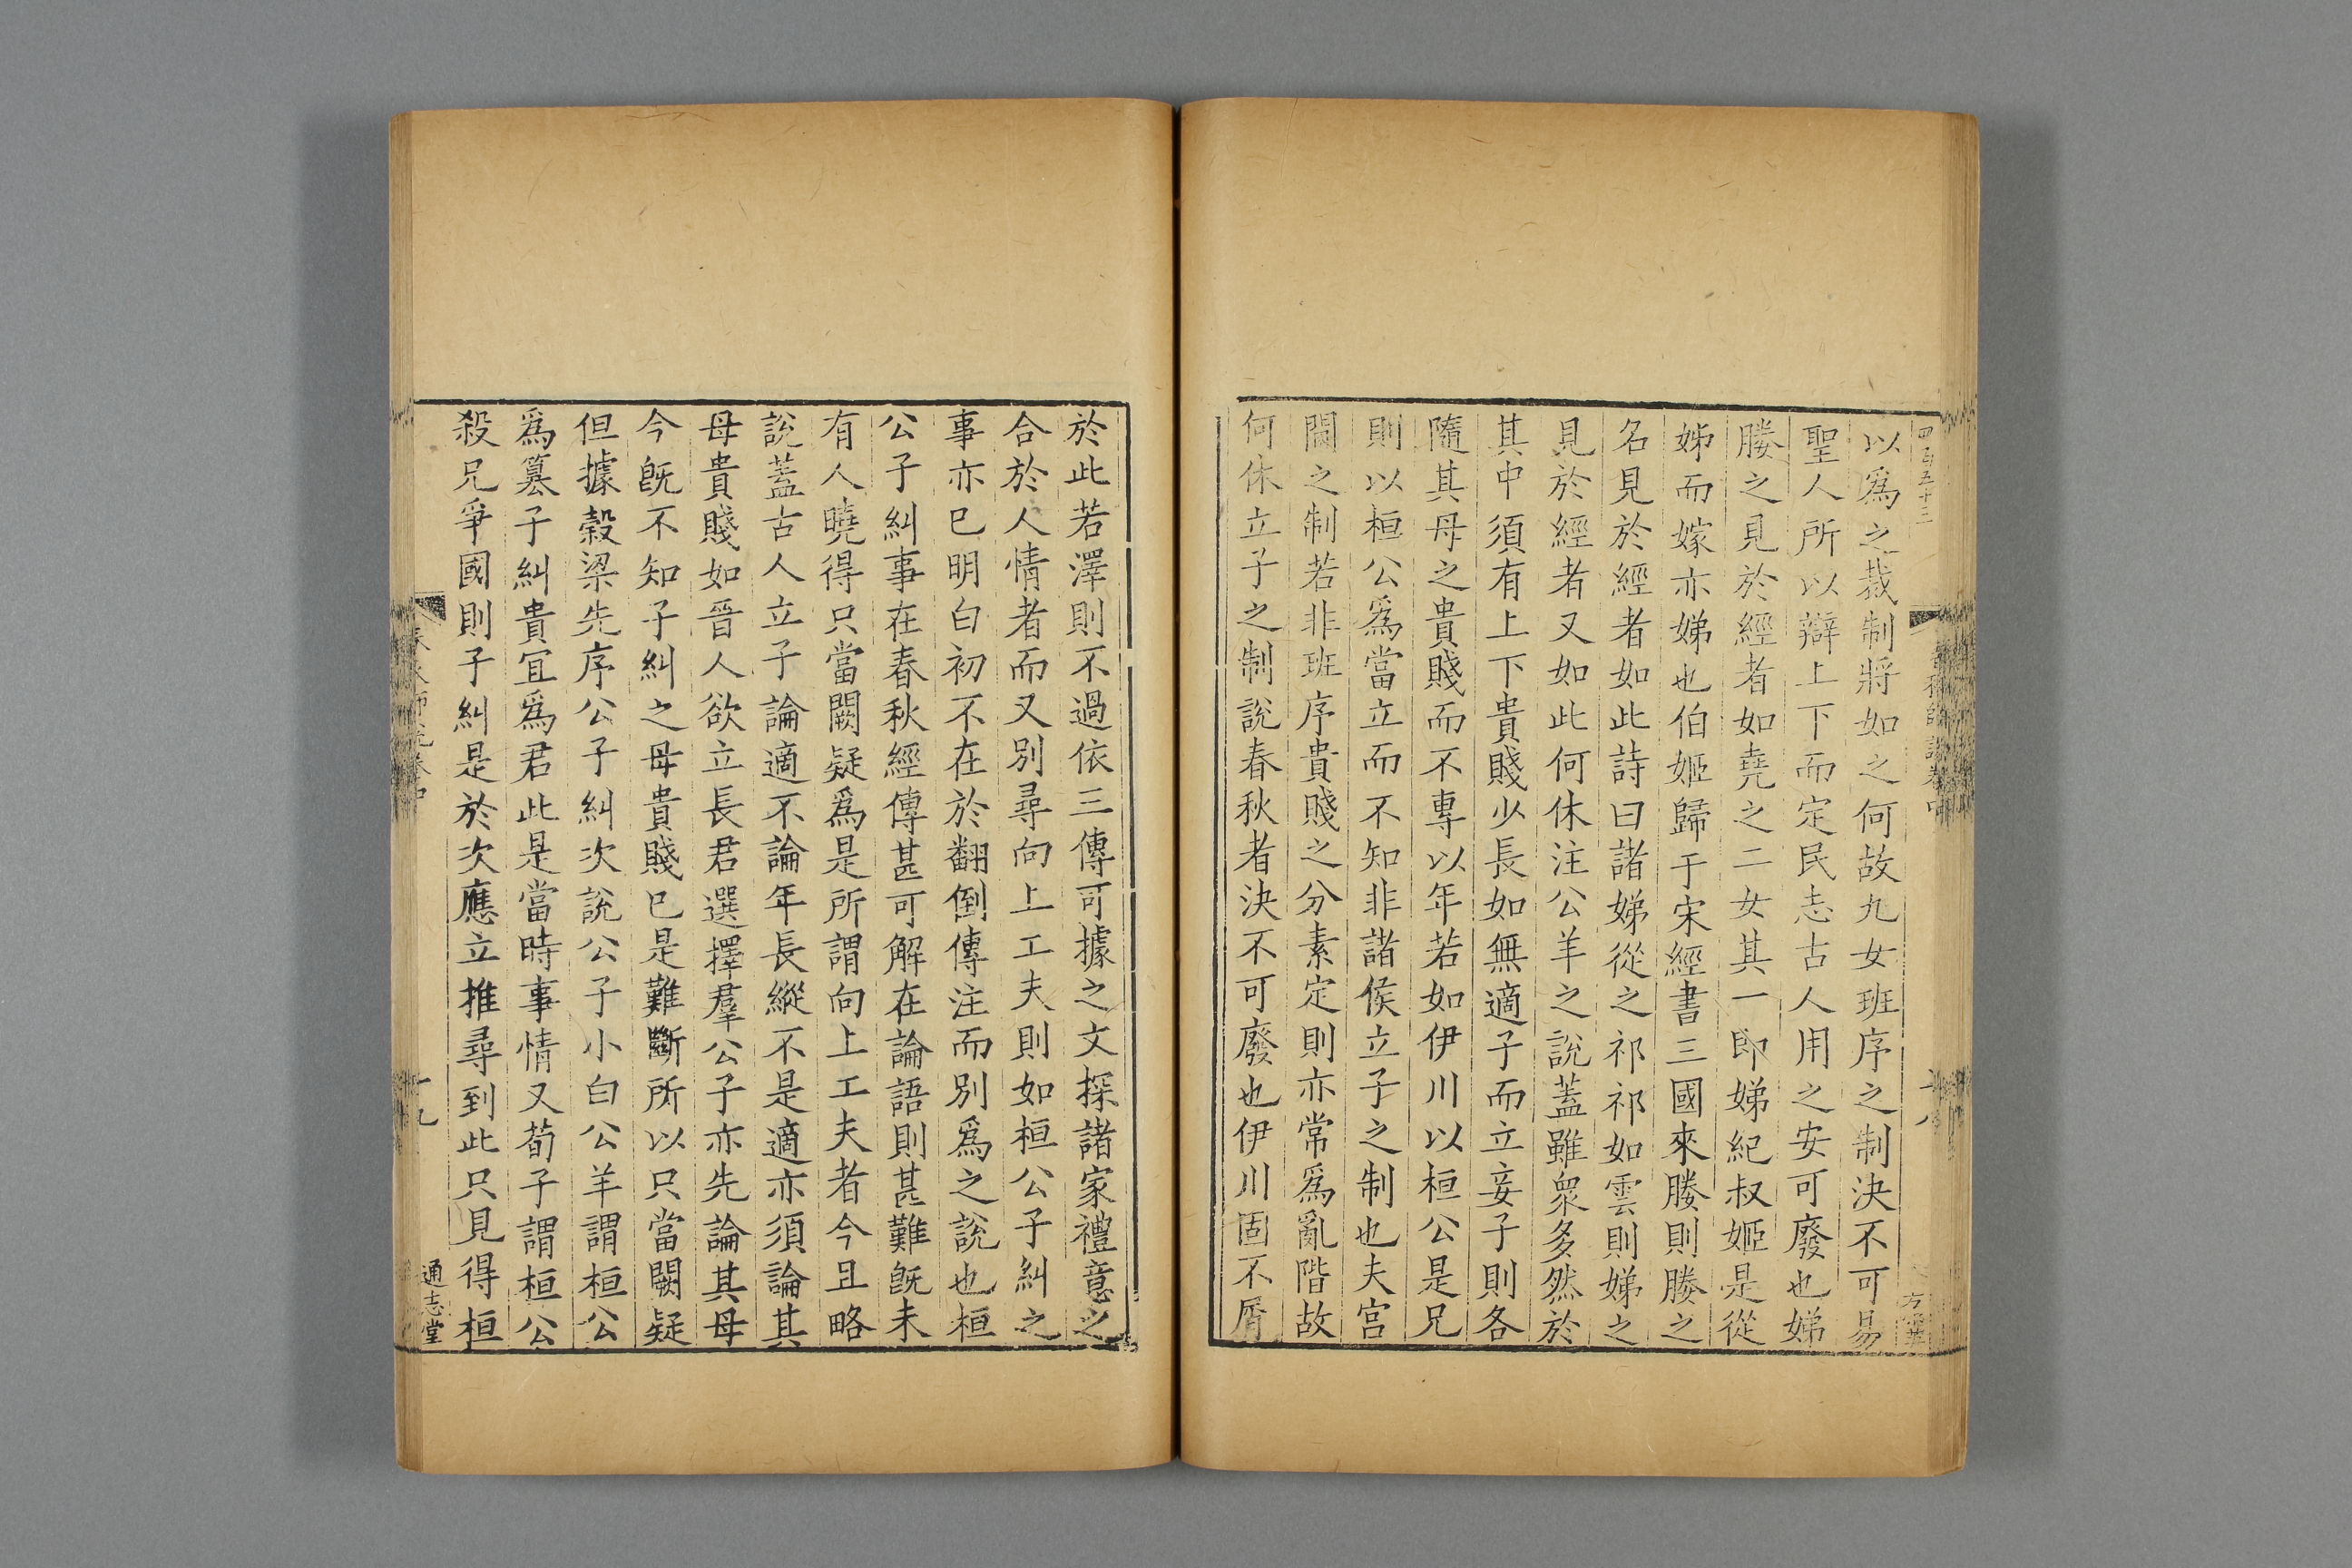 四百五十三
以爲之裁制將如之何故九女班序之制決不可易
聖人所以辯上下而定民志古人用之安可廢也娣
媵之見於經者如堯之二女其一卽娣紀叔姬是從
姊而嫁亦娣也伯姬歸于宋經書三國來媵則媵之
名見於經者如此詩曰諸娣從之祁祁如雲則娣之
見於經者又如此何休注公羊之說蓋雖衆多然於
其中須有上下貴賤少長如無適子而立妾子則各
隨其母之貴賤而不專以年若如伊川以桓公是兄
則以桓公爲當立而不知非諸侯立子之制也夫宮
闈之制若非班序貴賤之分素定則亦常爲亂階故
何休立子之制說春秋者決不可廢也伊川固不屑
於此若澤則不過依三傳可據之文探諸家禮意之
合於人情者而又別尋向上工夫則如桓公子糾之
事亦已明白初不在於翻倒傳注而別爲之說也桓
公子糾事在春秋經傳甚可解在論語則甚難旣未
有人曉得只當闕疑爲是所謂向上工夫者今且略
說蓋古人立子論適不論年長縱不是適亦須論其
母貴賤如晉人欲立長君選擇羣公子亦先論其母
今旣不知子糾之母貴賤已是難斷所以只當闕疑
但據穀梁先序公子糾次說公子小白公羊謂桓公
爲篡子糾貴宜爲君此是當時事情又荀子謂桓公
殺兄爭國則子糾是於次應立推尋到此只見得桓
春秋師說卷中
十九
通志堂